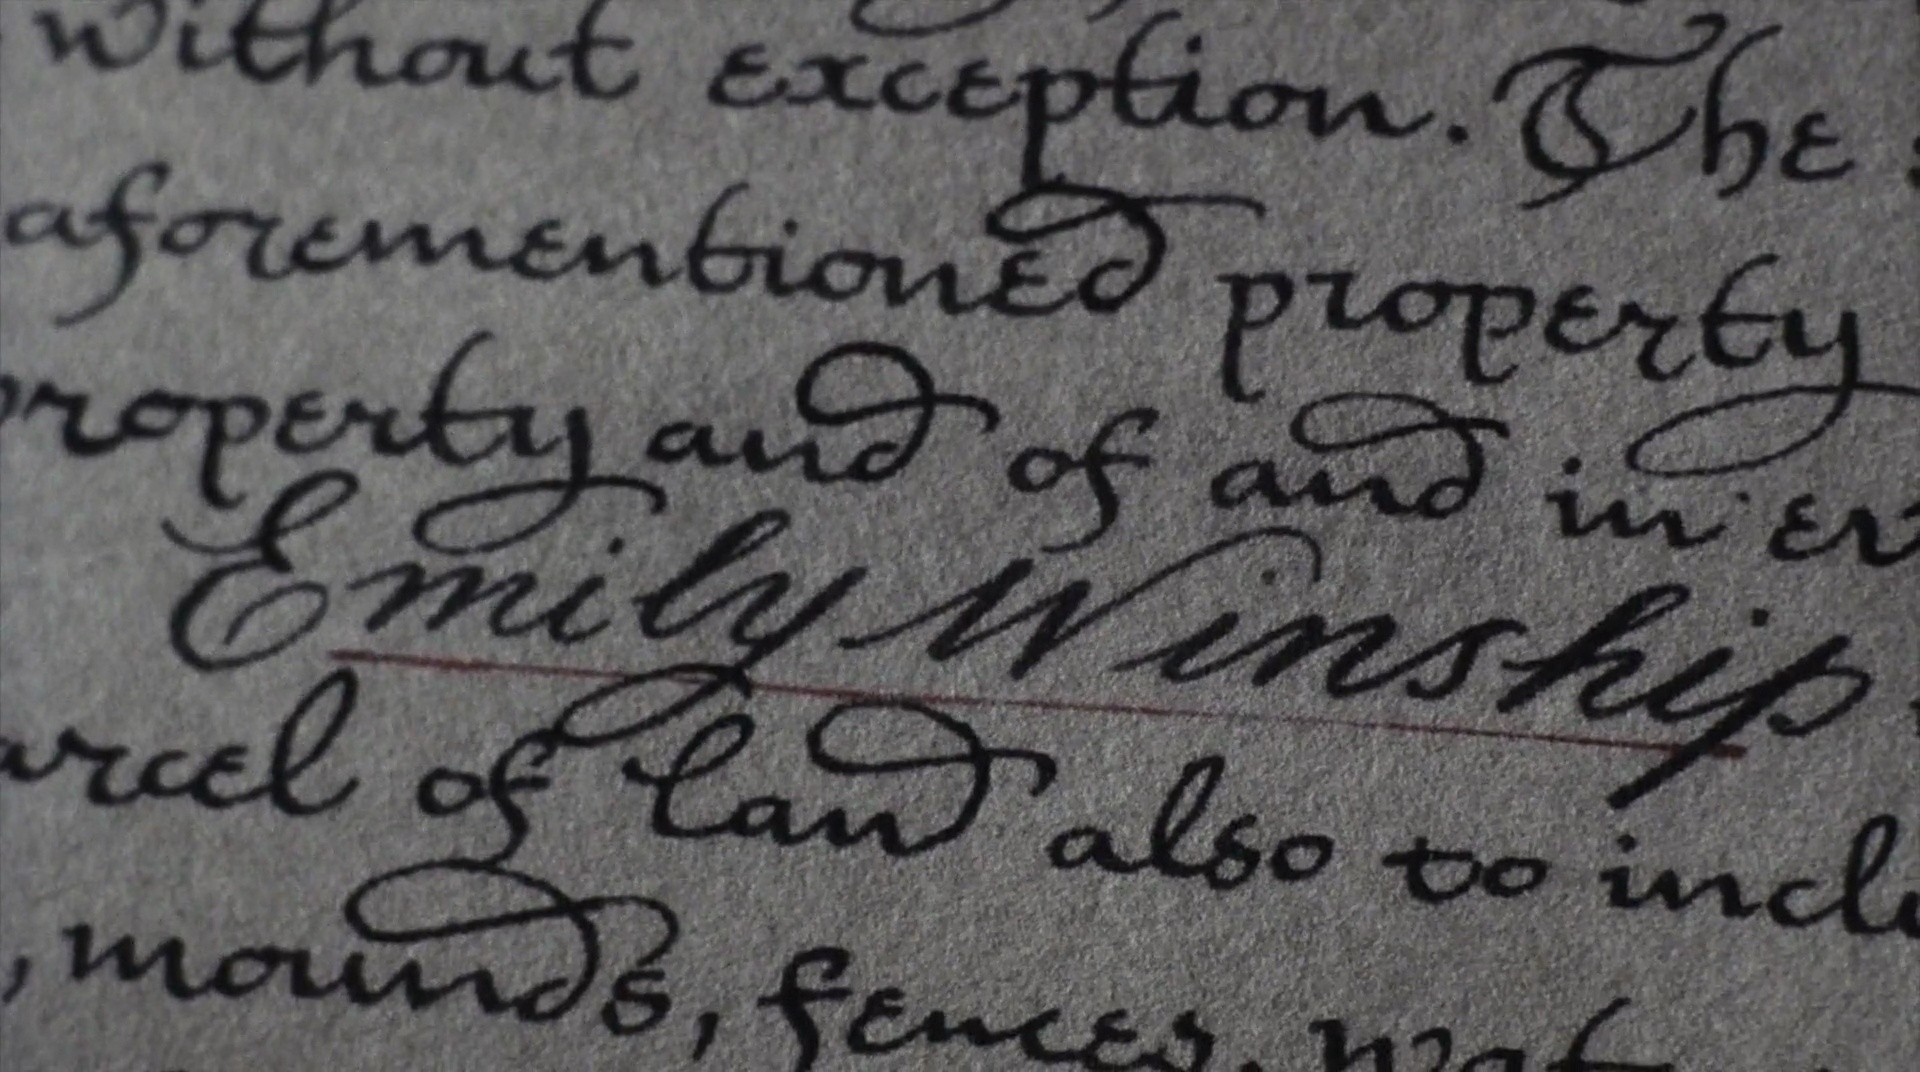 without exception. The
aforementioned property
property and of and in
Emily Winship
of land also to
, mounds, fences,